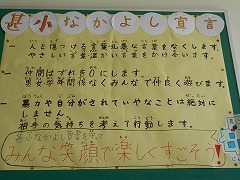 甚小なかよし宣言
人を傷つける言葉や乱暴な言葉をなくします。
やさしい言葉やあたたかい言葉をかけます。
仲間はずれを0にします。
男女学年関係なくみんなで仲良く遊びます。
暴力や自分がされていやなことは絶対に
しません。
相手の気持ちを考えて行動します。
甚小なかよし宣言を守って
みんな笑顔で楽しくすごそう!